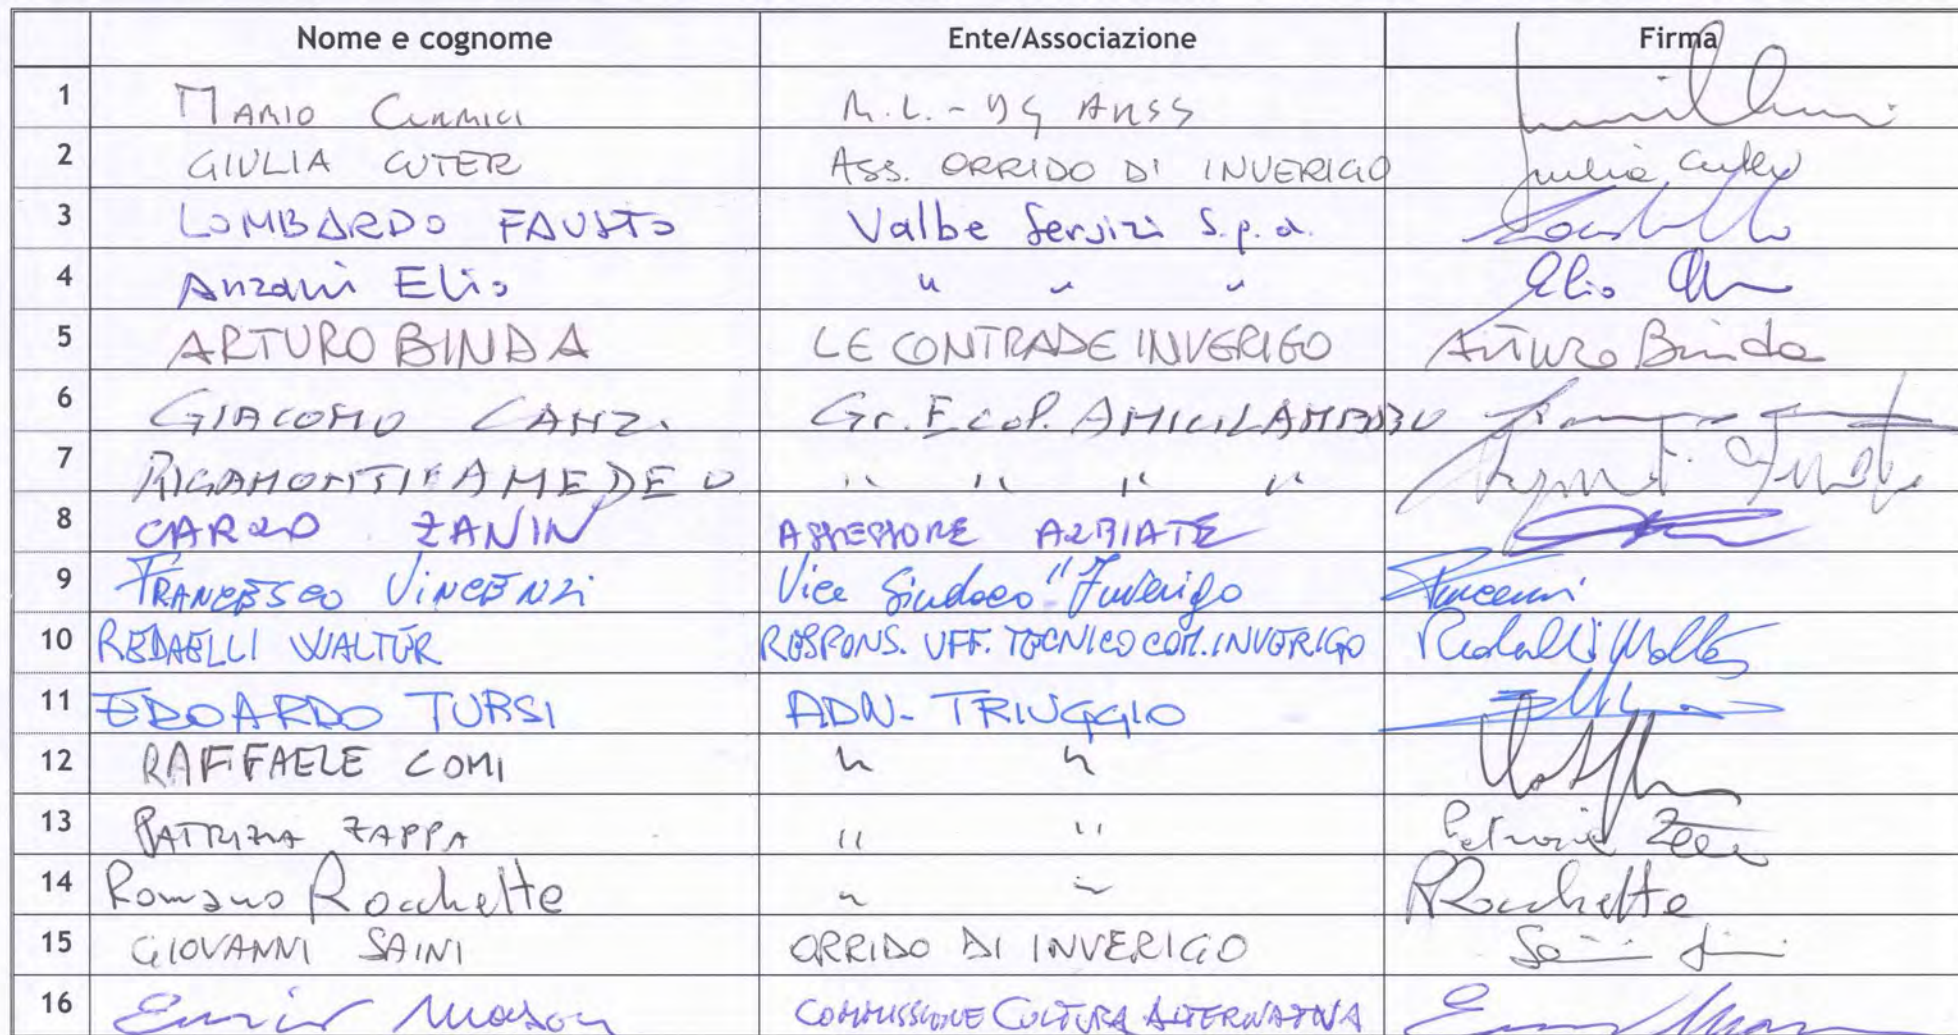 Nome e cognome Ente/Associazione Firma
1 MARIO
2 GIULIA CUTER ASS. ORRIDO DI INVERIGO Giulia Cuter
3 LOMBARDO FAUSTO Valbe Servizi S.p.a.
4 Anzani Elio " " " Elio
5 ARTURO BINDA LE CONTRADE INVERIGO Arturo Binda
6 GIACOMO CANZI Gr. Ecol. AMICI LAMBRO
7 RIGAMONTI AMEDEO " " " "
8 CARLO ZANIN ASSESSORE ALBIATE
9 FRANCESCO VINCENZI Vice Sindaco "Inverigo Vincenzi
10 REDAELLI WALTER RESPONS. UFF. TECNICO COM. INVERIGO Redaelli Walter
11 EDOARDO TURSI ADN - TRIUGGIO
12 RAFFAELE COMI " "
13 PATRIZIA ZAPPA " " Patrizia
14 Romano Rocchette " " Rocchette
15 GIOVANNI SAINI ORRIDO DI INVERIGO
16 Mason COMMISSIONE CULTURA ALTERNATIVA